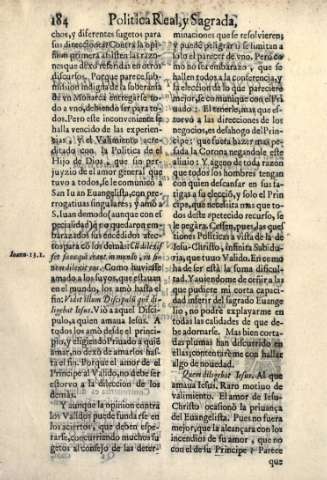 184
Politica Real, y Sagrada,
chos, y diferentes sugetos para
sus direcciones. Contra la opi
nion primera assisten las razo-
nes que dexo referidas en otros
discursos. Porque parece sub-
mission indigna de la soberania
de vn Monarca entregarse to-
do a vno, debiendo ser para to-
dos. Pero este inconveniente se
halla vencido de las experien-
cias, y el Valimiento acre-
ditado con la Politica de el
Hijo de Dios, que sin per-
juyzio de el amor general que
tuvo a todos, se le comunicò a
San Iuan Evangelista, con pre-
rrogativas singulares; y amò a
S. Iuan de modo (aunque con es
pecialidad) q̃ no quedaron em-
barazados sus encendidos afec-
tos para con los demàs:
Ioann. 13. 1.
in mundo, in fi-
nem dilexit eos. Como huviesse
amado a los suyos, que estauan
en el mundo, los amò hasta el
fin. Vidit illum Discipulũ quẽ di-
ligebat Iesus. Viò a aquel Disci-
pulo, a quien amaua Iesus. A
todos los amò desde el princi-
pio, y eligiendo Priuado a quiẽ
amar, no dexò de amarlos has-
ta el fin. Porque el amor de el
Principe al Valido, no debe ser
estorvo a la dileccion de los
demàs.
Y aunque la opinion contra
los Validos puede fundarse en
los aciertos, que deben espe-
rarse, concurriendo muchos su
getos al consejo de las deter-
minaciones que se resolvieren;
y puede peligrar si se limitan a
solo el parecer de vno. Pero co
mo no sea embarazo, que se
hallen todos a la conferencia, y
la eleccion de lo que pareciere
mejor, se comunique con el Pri
uado. El tenerle, mas que es-
torvo a las direcciones de los
negocios, es desahogo del Prin-
cipe; que fuera hazer mas pe-
sada la Corona negandole este
aliuio: Y ageno de toda razon
que todos los hombres tengan
con quien descansar en sus fa-
tigas a su eleccion, y solo el Prin
cipe, que necessita mas que to-
dos deste apetecido recurso, se
le negàra. Cessen, pues, las ques
tiones Politicas a vista de la de
Jesu-Christo, infinita Sabidu-
ria, que tuuo Valido. En como
ha de ser està la suma dificul-
tad. Y auiendome de ceñir a las
que permite mi corta capaci-
dad inferir del sagrado Euange
lio, no podrè explayarme en
todas las calidades de que de-
be adornarse. Mas bien corta-
das plumas han discurrido en
ellas; contentarème con hallar
algo de nouedad.
Quem diligebat Iesus. Al que
amaua Iesus. Raro motiuo de
valimiento. El amor de Iesu-
Christo ocasionò la priuança
del Euangelista. Pues no fuera
mejor, que la alcançara con los
incendios de su amor, que no
con el de su Principe? Parece
que